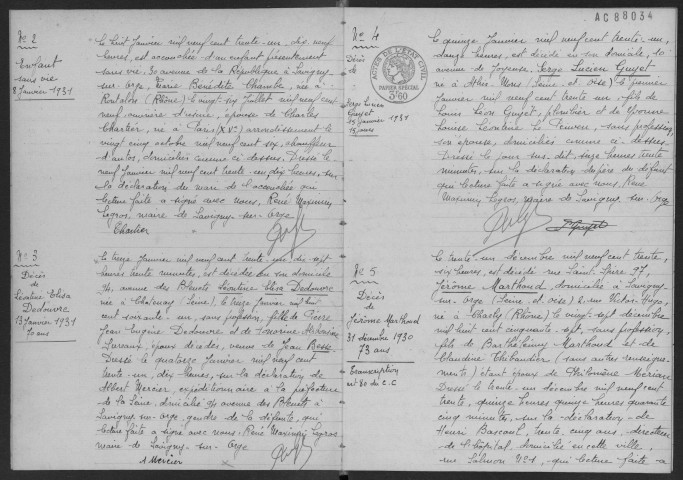 N° 2
Enfant
sans vie
8 Janvier 1931
Le huit Janvier mil neuf cent trente-un, dix neuf
heures, est accouchée d'un enfant présentement
sans vie, 30 avenue de la République à Savigny-
sur-Orge, Marie Bénédite Chambe, née à
(Rhône) le vingt six Juillet mil neuf
cent neuf, ouvrière d'usine, épouse de Charles
Chartier, né à Paris (XVe) arrondissement le
vingt cinq octobre mil neuf cent six, chauffeur
d'autos, domiciliés comme ci-dessus. Dressé le
neuf Janvier mil neuf cent trente-un, dix heures, sur
la déclaration du mari de l'accouchée qui
lecture faite a signé avec nous, René Maximin
Legros, maire de Savigny-sur-Orge
Chartier
N° 3
Décès
de
Léontine Elisa
Dedouvre
13 Janvier 1931
70 ans
Le treize Janvier mil neuf cent trente un, dix sept
heures trente minutes, est décédée en son domicile
94, avenue des Bleuets Léontine Elisa Dedouvre
née à Chatenay (Seine), le treize Janvier mil huit
cent soixante-un, sans profession, fille de Pierre
Jean Eugène Dedouvre et de
, époux décédés, veuve de Jean Besse
Dressé le quatorze Janvier mil neuf cent
trente-un, dix heures, sur la déclaration de
Albert Mercier, expéditionnaire à la préfecture
de la Seine, domicilié 94 avenue des Bleuets à
Savigny-sur-Orge, gendre de la défunte, qui
lecture faite a signé avec nous, René Maximin Legros
maire de Savigny-sur-Orge
A Mercier
AC 88034
N° 4
Décès
de
Serge Lucien
Guyet
15 Janvier 1931
13 jours
ACTES DE L'ETAT CIVIL
PAPIER SPECIAL
3f60
Le quinze Janvier mil neuf cent trente-un,
heures, est décédé en son domicile, 10
avenue de Joyeuse, Serge Lucien Guyet
né à Athis-Mons (Seine et Oise) le premier
Janvier mil neuf cent trente un, fils de
Louis Léon Guyet, plombier et de
Louise Léontine Le , sans profession,
son épouse, domiciliés comme ci-dessus.
Dressé le jour sus dit, seize heures trente
minutes, sur la déclaration du père du défunt
qui lecture faite a signé avec nous, René
Maximin Legros, maire de Savigny-sur-Orge
Guyet
N° 5
Décès
de
Jérôme Marthoud
31 décembre 1930
73 ans
Transcription
art 80 du C.C
Le trente un décembre mil neuf cent trente,
six heures, est décédé rue Saint Spire 97,
Jérôme Marthoud, domicilié à Savigny
sur-Orge (Seine-et-Oise) 2 rue Victor Hugo,
né à Charly (Rhône) le vingt sept décembre
mil huit cent cinquante-sept, sans profession,
fils de Barthélemy Marthoud et de
Claudine Thibaudier (sans autres renseigne-
ments) époux de Philomène
Dressé le trente un décembre mil neuf cent
trente, quinze heures quinze heures quarante
cinq minutes, sur la déclaration de
Henri Bascoul, trente cinq ans, directeur
de l'hôpital, domicilié en cette ville,
rue Salmon N° 1, qui lecture faite a